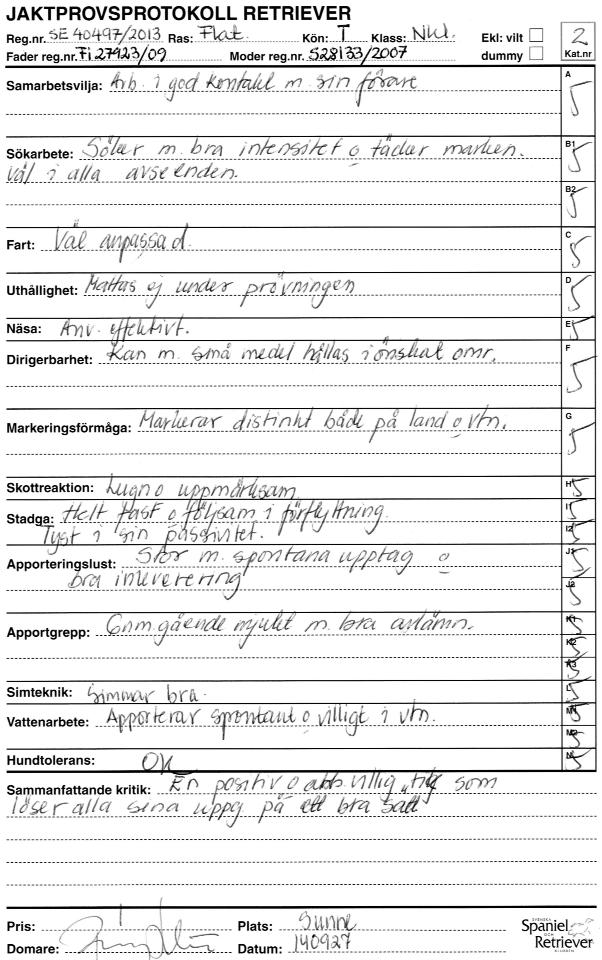 JAKTPROVSPROTOKOLL RETRIEVER
Reg.nr. SE 40497/2013 Ras: Flat. Kön: T Klass: Nkl. Ekl: vilt 2
Fader reg.nr. FI 27923/09 Moder reg.nr. S28133/2007 dummy Kat.nr
Samarbetsvilja: Arb. i god kontakt m. sin förare A 5
Sökarbete: Söker m. bra intensitet o täcker marken. B1 5
väl i alla avseenden.
B2 5
Fart: Väl anpassad. C 5
Uthållighet: Mattas ej under prövningen D 5
Näsa: Anv. effektivt. E 5
Dirigerbarhet: Kan m. små medel hållas i önskat omr. F 5
Markeringsförmåga: Markerar distinkt både på land o vtn. G 5
Skottreaktion: Lugn o uppmärksam H 5
Stadga: Helt fast o följsam i förflyttning. I1 5
Tyst i sin passivitet. I2 5
Apporteringslust: Stor m. spontana upptag o J1 5
bra inleverering J2 5
Apportgrepp: Gnm.gående mjukt m. bra avlämn. K1 5
K2 5
K3 5
Simteknik: Simmar bra. L 5
Vattenarbete: Apporterar spontant o villigt i vtn. M1 5
M2 5
Hundtolerans: OK N 5
Sammanfattande kritik: En positiv o arb.villig tik som
löser alla sina uppg på ett bra sätt
Pris: 1 Plats: Sunne
Domare: Datum: 140927
SVENSKA
Spaniel
OCH
Retriever
KLUBBEN